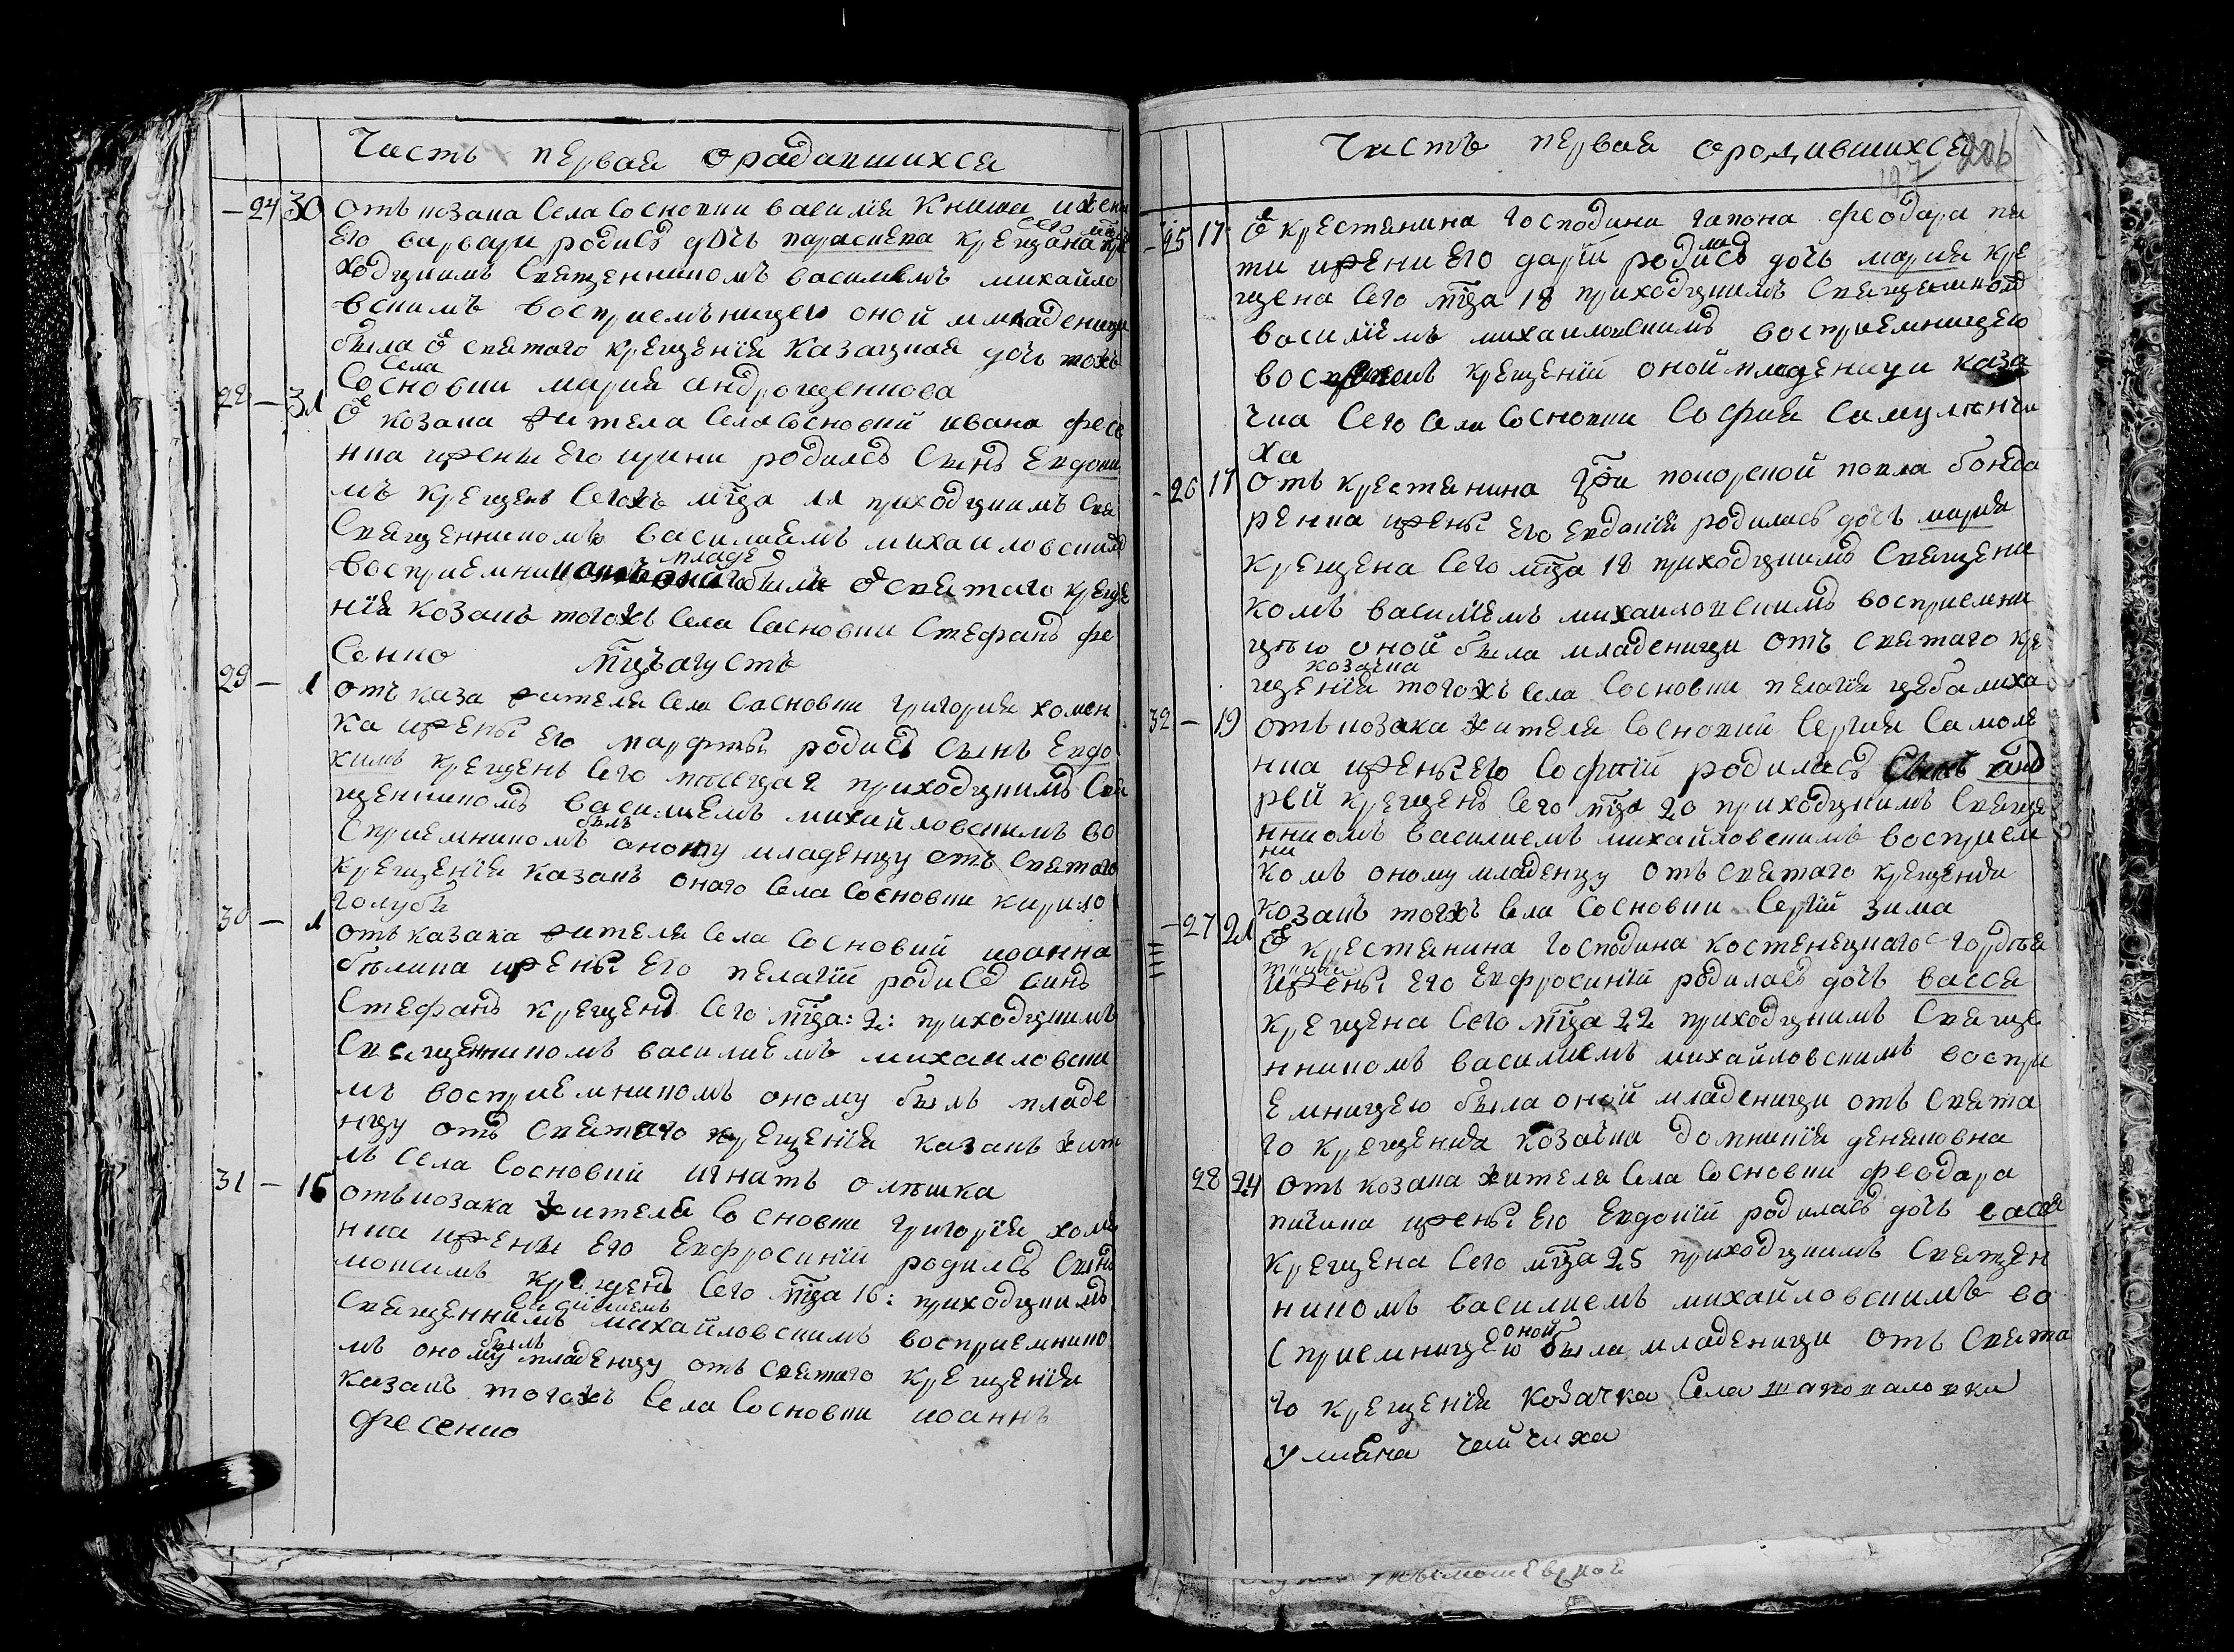 Часть первая ородавшихся
24 30 Отъ козака Села Сосновки василїя Книши
Его варвари родис дочь параскева Крещена
ходскимъ Священникомъ василиемъ михайло
вскимъ Восприемъницею оной младеници
была Ѿ святого крещенїя Казацкая дочь тохъ
Села
Сосновки мария андрощенкова
28 31 Ѿ козака жителя Села Сосновки ивана фесе
нка ижены Его ирини родился Сынъ Евдоки
мъ крещенъ Сегожъ мца 31 приходскимъ Свя
Священникомъ василиемъ михаиловскимъ
младе
Восприемни былъ Ѿ святаго креще
нїя козакъ тогожъ Села Сосновки Стефанъ фе
Сенко мцъ агустъ
29 1 отъ каза жителя Села Сосновки григория хомен
ка ижены Его марфы родис Сынъ Евдо
кимъ крещенъ Сего 2 приходскимъ Свя
щенникомъ василиемъ михайловскимъ во
былъ
Сприемникомъ оному младенцу отъ Святаго
крещенїя казакъ онаго Села Сосновки кирило
голубъ
30 1 отъ казака жителя Села Сосновки иоанна
бѣлика ижены Его пелагїи родис Синъ
Стефанъ крещенъ Сего мца: 2: приходскимъ
Священникомъ василиемъ михаиловски
мъ восприемникомъ оному былъ младе
нцу отъ Святаго крещенїя казакъ жите
лъ Села Сосновки игнатъ олѣшка
31 15 отъ козака жителя Сосновки григорїя хоме
нка ижены Его Евфросинїи родился Синъ
моисимъ крещенъ Сего мца 16: приходскимъ
василиемъ
Священнимъ михайловскимъ восприемнико
былъ
мъ оному младенцу отъ Святаго крещенїя
казакъ тогожъ Села Сосновки иоаннъ
фесенко
Часть первая ородившихся
197
25 17 Ѿ крестянина господина гапона феодора
ти ижени Его дарїи родилас дочь мария кре
щена Сего мца 18 приходскимъ Священнико
василїемъ михаиловскимъ восприемницею
крещенїи оной младеници каза
чка Сего Села Сосновки София Самуленчи
ха
26 17 Отъ крестянина покорской павла бонда
ренка ижены Его Евдокїи родилась дочь мария
крещена Сего мца 18 приходскимъ Священи
комъ василїемъ михаиловскимъ восприемни
цею оной была младеници отъ Святаго кре
козачка
щенїя тогожъ Села Сосновки пелагїя цебалиха
32 19 отъ козака жителя Сосновки Сергия Самоле
нка ижены Его Софїи родилас анд
рей крещенъ Сего мца 20 приходскимъ Свяще
нникомъ василиемъ михайловскимъ восприем
ни
комъ оному младенцу отъ Святаго крещенїя
козакъ тогожъ Села Сосновки Сергїи зима
27 21 Ѿ крестянина господина костенецкаго гордѣя
ижены Его Евфросинїи родилась дочь васся
крещена Сего мца 22 приходскимъ Свяще
нникомъ василиемъ михайловскимъ воспри
Емницею была оной младеници отъ Свята
го крещенїя козачка домникїя
28 24 отъ козака жителя Села Сосновки феодора
пичика ижены Его Евдокїи родилась дочь васся
крещена Сего мца 25 приходскимъ Священ
никомъ василиемъ михайловскимъ во
оной
Сприемницею была младеници отъ Свята
го крещенїя козачка Села шаповаловки
Улияна чайчиха